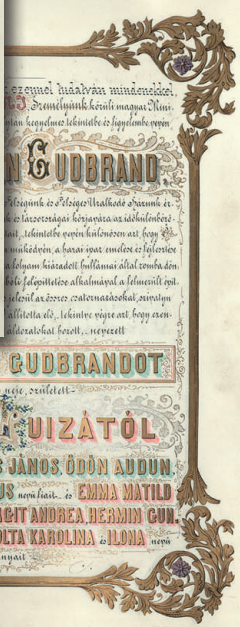 ezennel tudatván mindenekkel,
Személyünk körüli magyar Mini-
kegyelmes tekintetbe és figyelembe vevén
N GUDBRAND
Felségünk és Felséges Uralkodó Házunk ér-
tekintetbe vevén különösen azt, hogy
működvén, a hazai ipar emelése és fejlesztése
a folyam kiáradott hullámai által romba dön-
felépíttetése alkalmával a felmerült épít-
jelesül az összes csatornázásokat, szivattyu
állította elő, tekintve végre azt, hogy ezen
áldozatokat hozott, nevezett
GUDBRANDOT
neje, született
LUIZÁTÓL
S JÁNOS, ÖDÖN AUDUN,
US nevü fiait és EMMA MATILD
AGIT ANDREA, HERMIN GUN.
OLTA KAROLINA és ILONA nevü